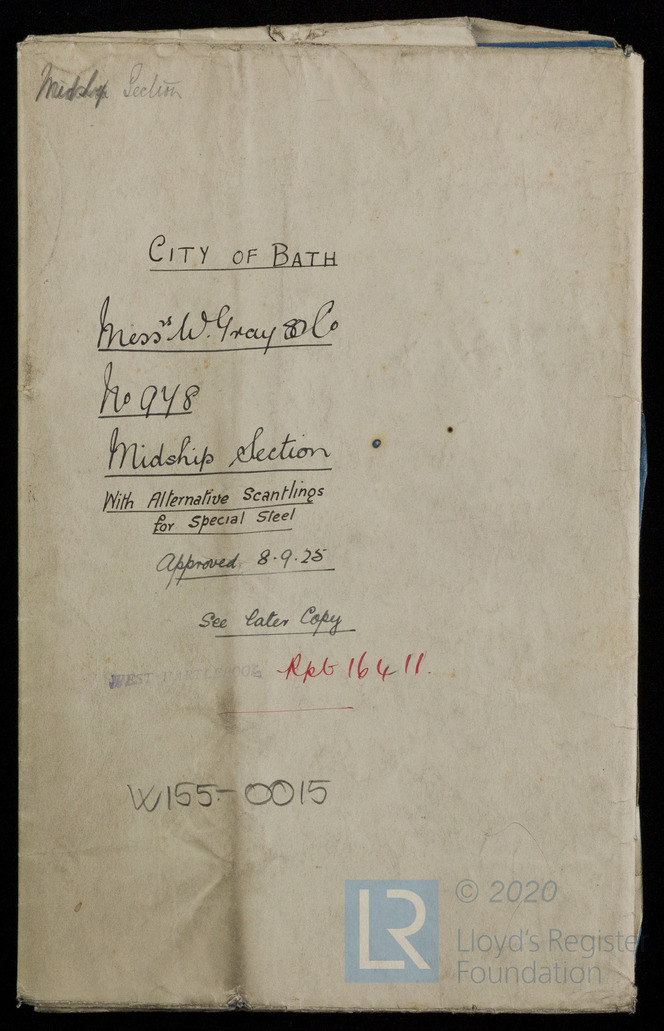 Midship Section
CITY OF BATH
Messrs W. Gray & Co
No 948
Midship Section
With Alternative Scantlings
for Special Steel
Approved 8.9.25
See later Copy
WEST HARTLEPOOL Rpt 16411.
W155-0015
LR
© 2020
Lloyd's Register
Foundation